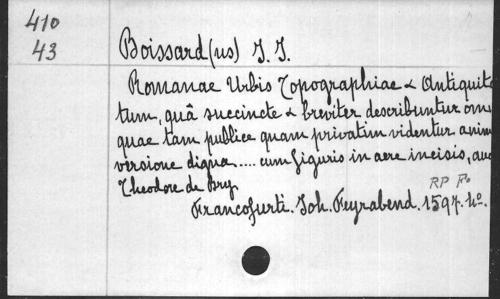 410
43
Boissard(us) J. J.
Romanae Urbis Topographiae & Antiquita
tum, quâ succincte & breviter describuntur omn
quae tam publice quam privatim videntur anim
versione digna .... cum figuris in aere incisis, auc
Theodore de Bry
RP Fo
Francofurti. Joh. Feyrabend. 1597. 4o.